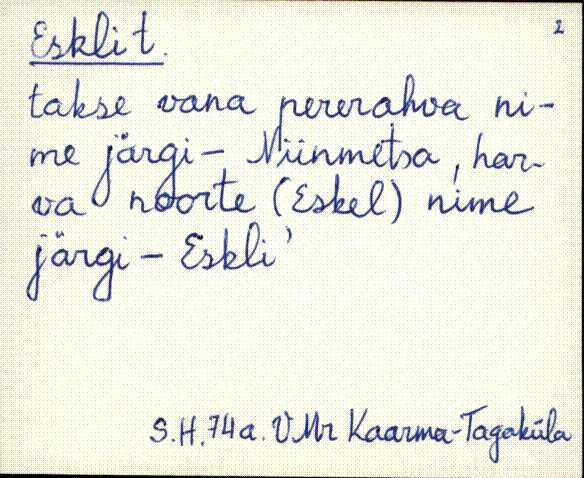 Esklit. 2
takse vana pererahva ni-
me järgi - Niinmetsa, har-
va noorte (Eskel) nime
järgi - Eskli'
S.H. 74a. VMr Kaarma-Tagaküla